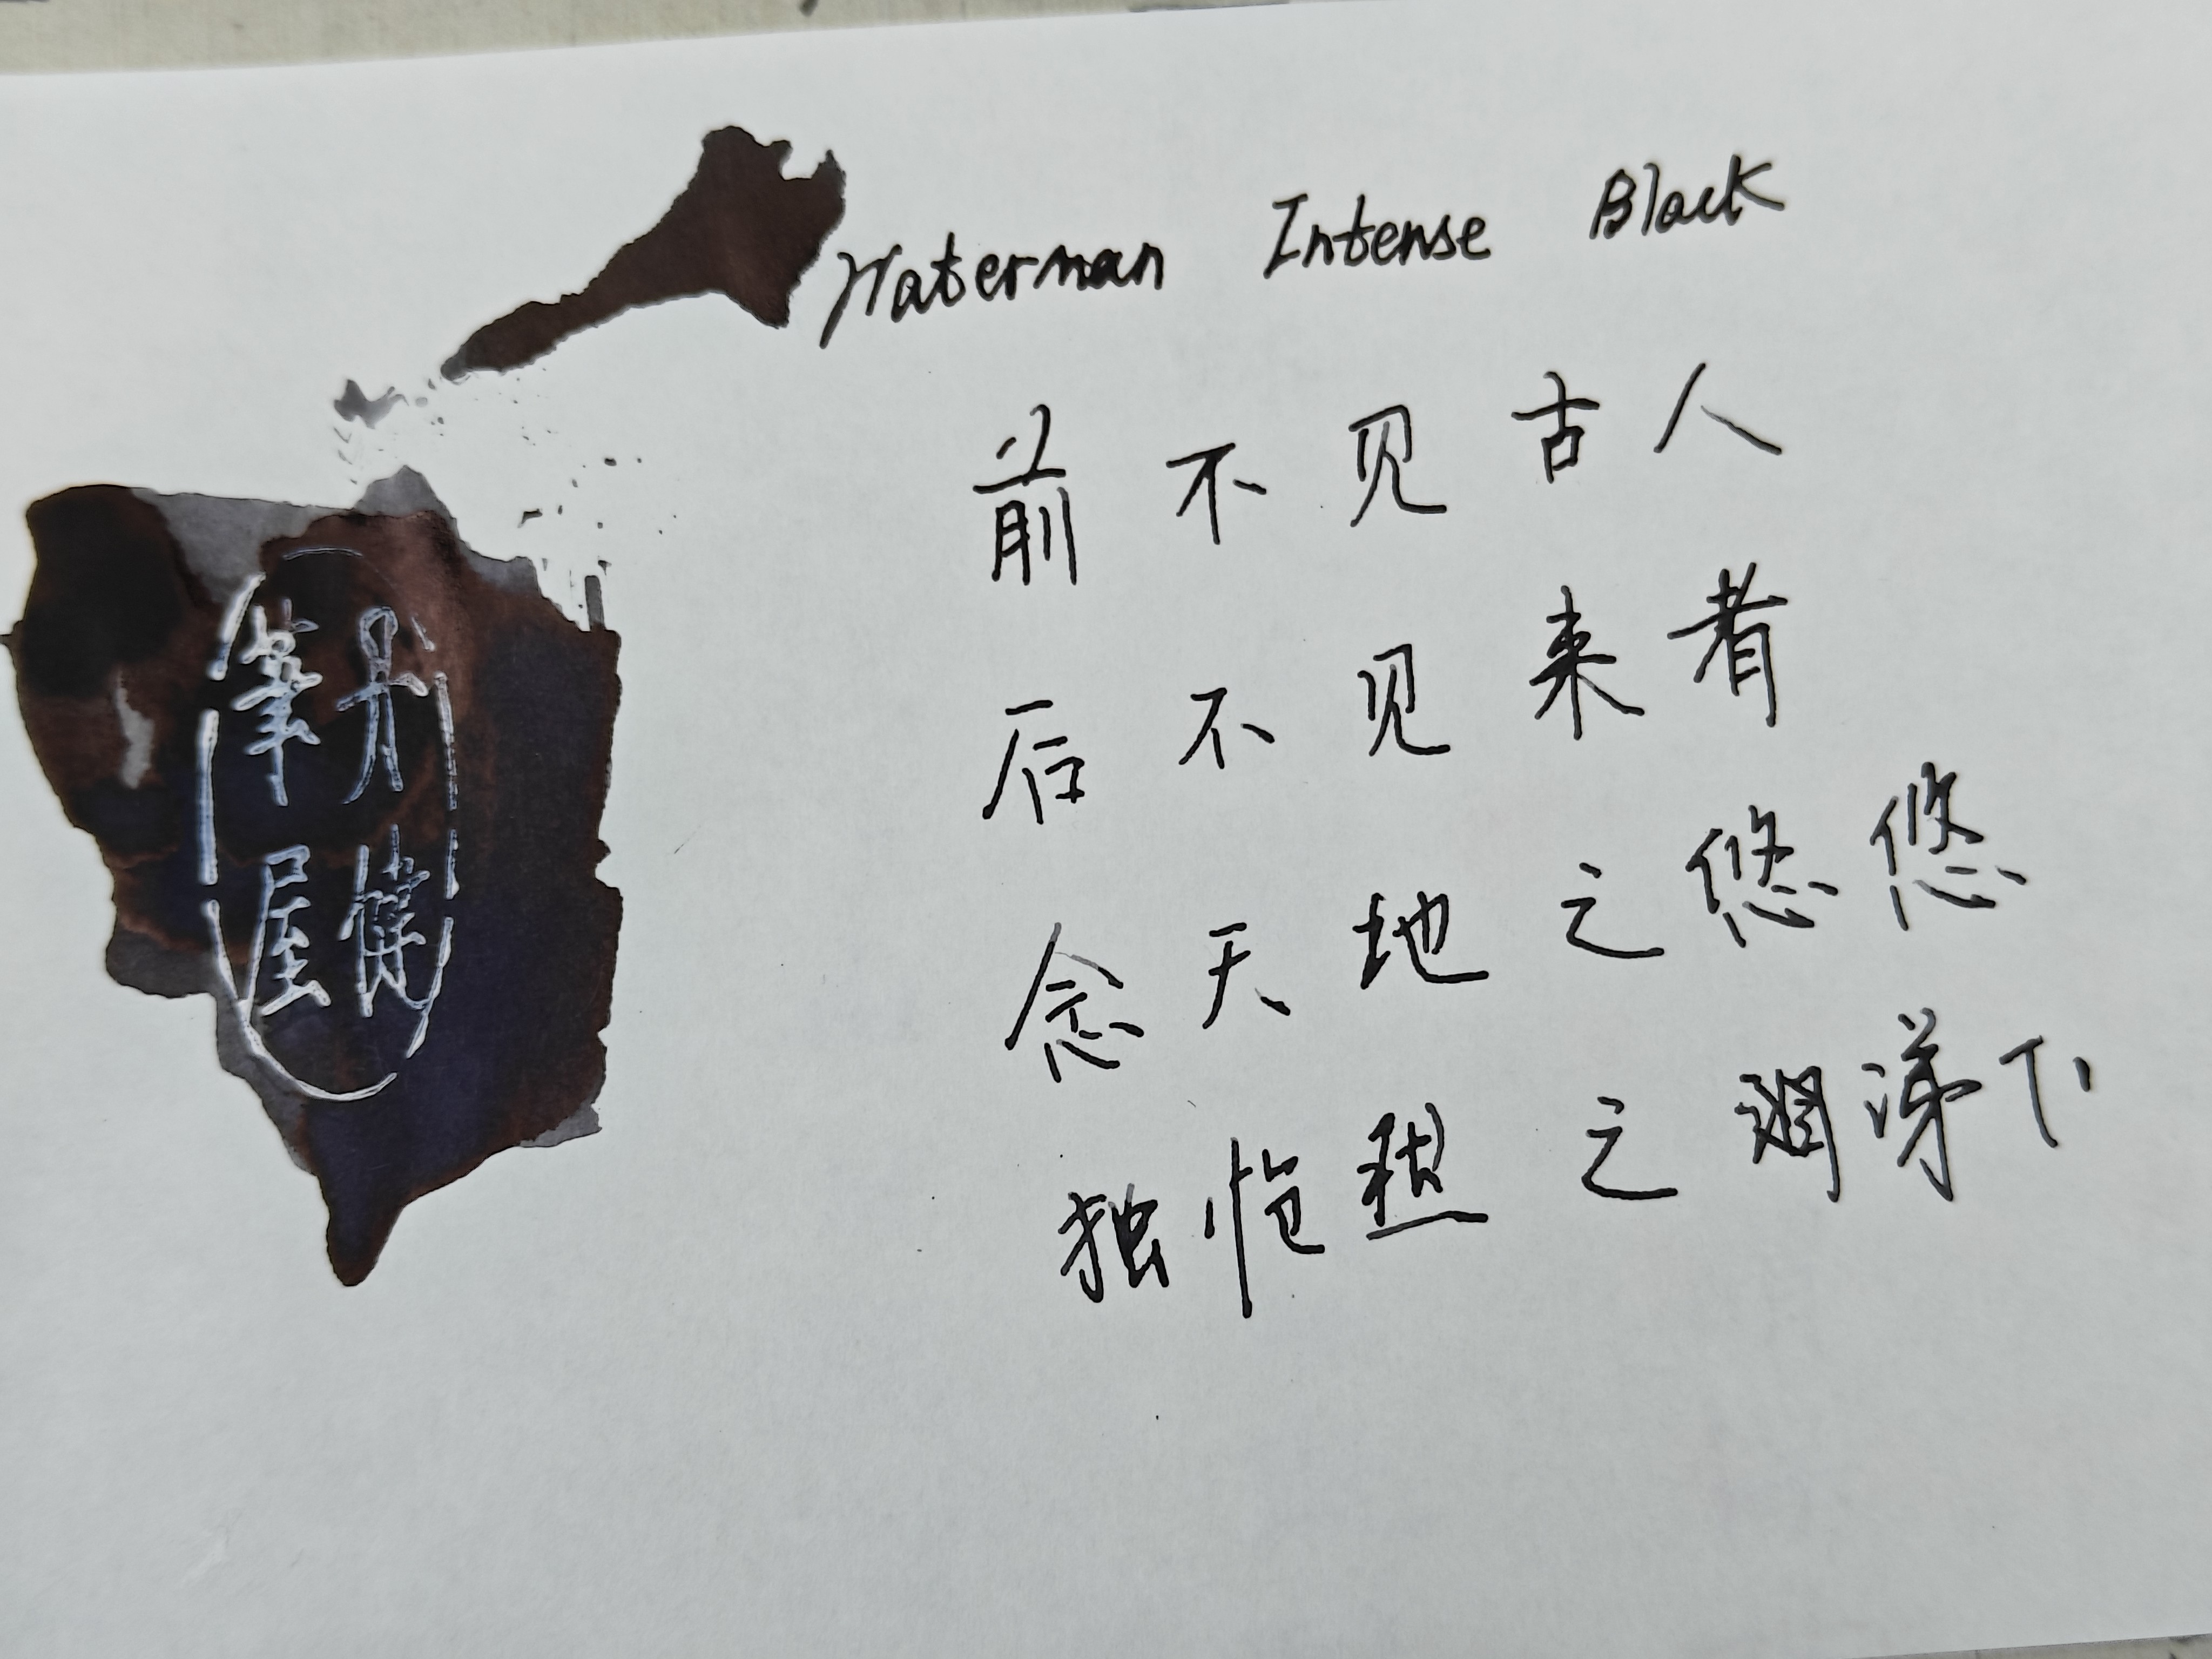 Waterman Intense Black
前不见古人
后不见来者
念天地之悠悠
独怆之涕下
筆屋